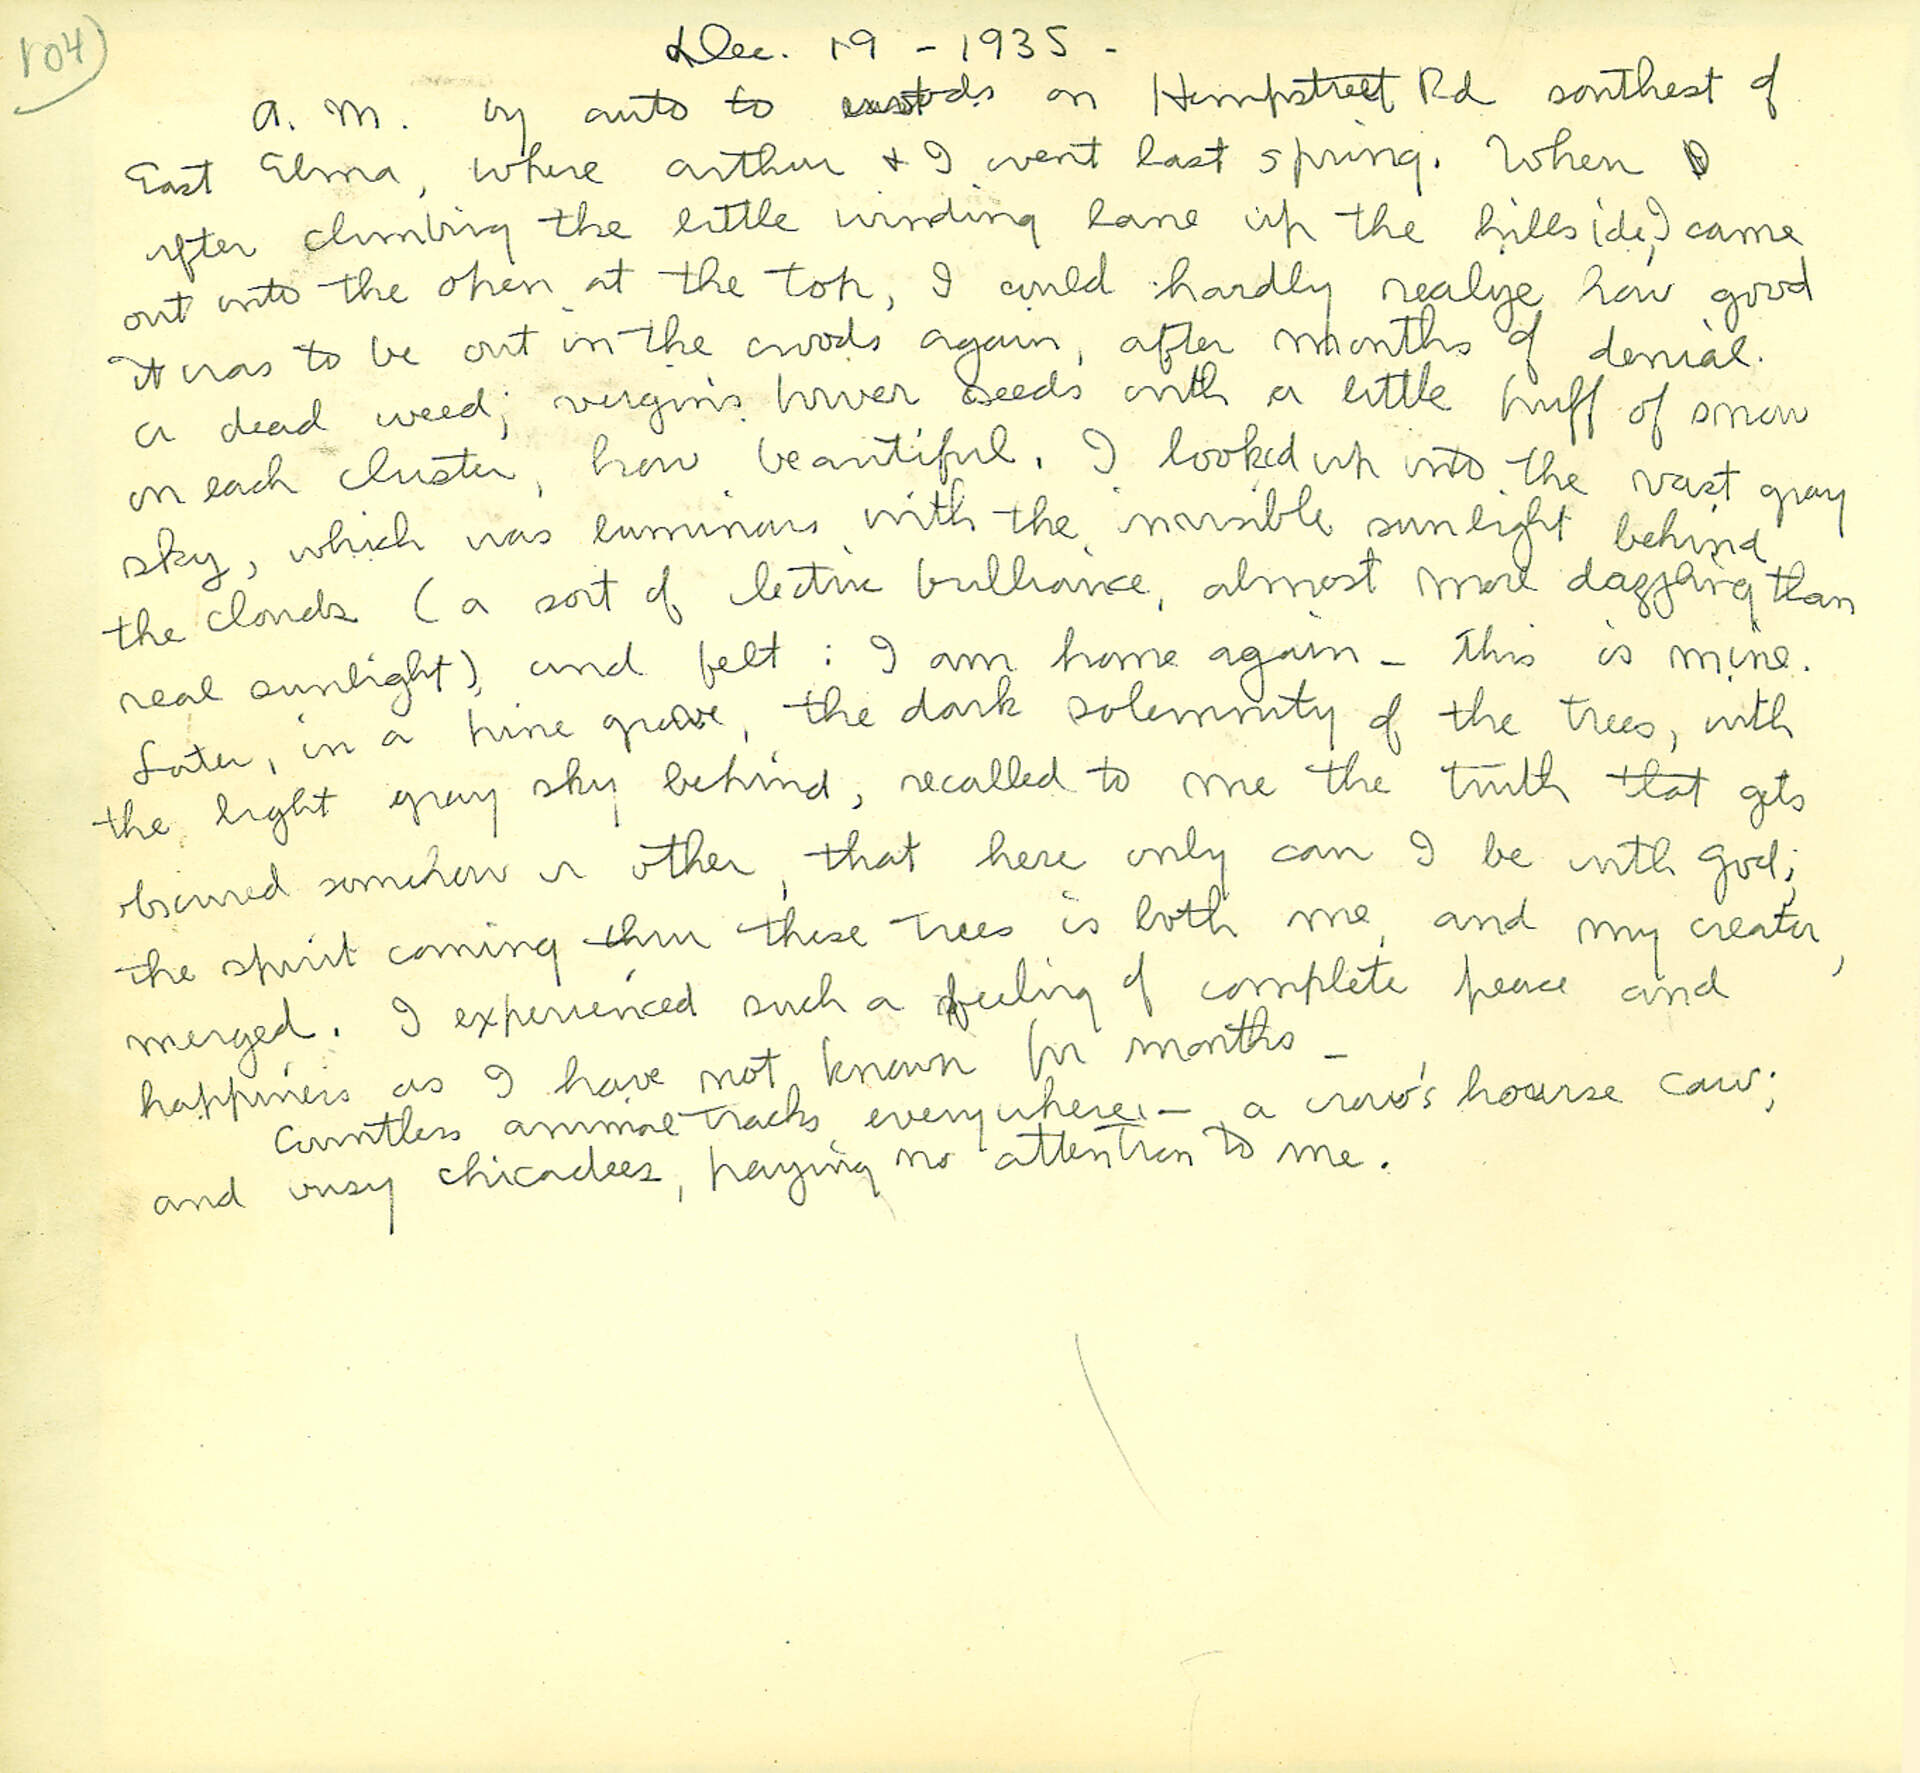 104)
Dec. 19 - 1935 -
A. M. by auto to woods on Hempstreet Rd southest of
East Elma, where Arthur & I went last spring. When
after climbing the little winding lane up the hillside, I came
out into the open at the top, I could hardly realize how good
it was to be out in the woods again, after months of denial.
A dead weed; virgin's bower seeds with a little puff of snow
on each cluster, how beautiful. I looked up into the vast gray
sky, which was luminous with the invisible sunlight behind
the clouds (a sort of lectric brilliance, almost more dazzling than
real sunlight) and felt : I am home again - This is mine.
Later, in a pine grove, the dark solemnity of the trees, with
the light gray sky behind, recalled to me the truth that gets
obscured somehow or other, that here only can I be with God;
the spirit coming thru these trees is both me, and my creator,
merged. I experienced such a feeling of complete peace and
happiness as I have not known for months -
Countless animal tracks everywhere; - a crow's hoarse caw;
and busy chicadees, paying no attention to me.